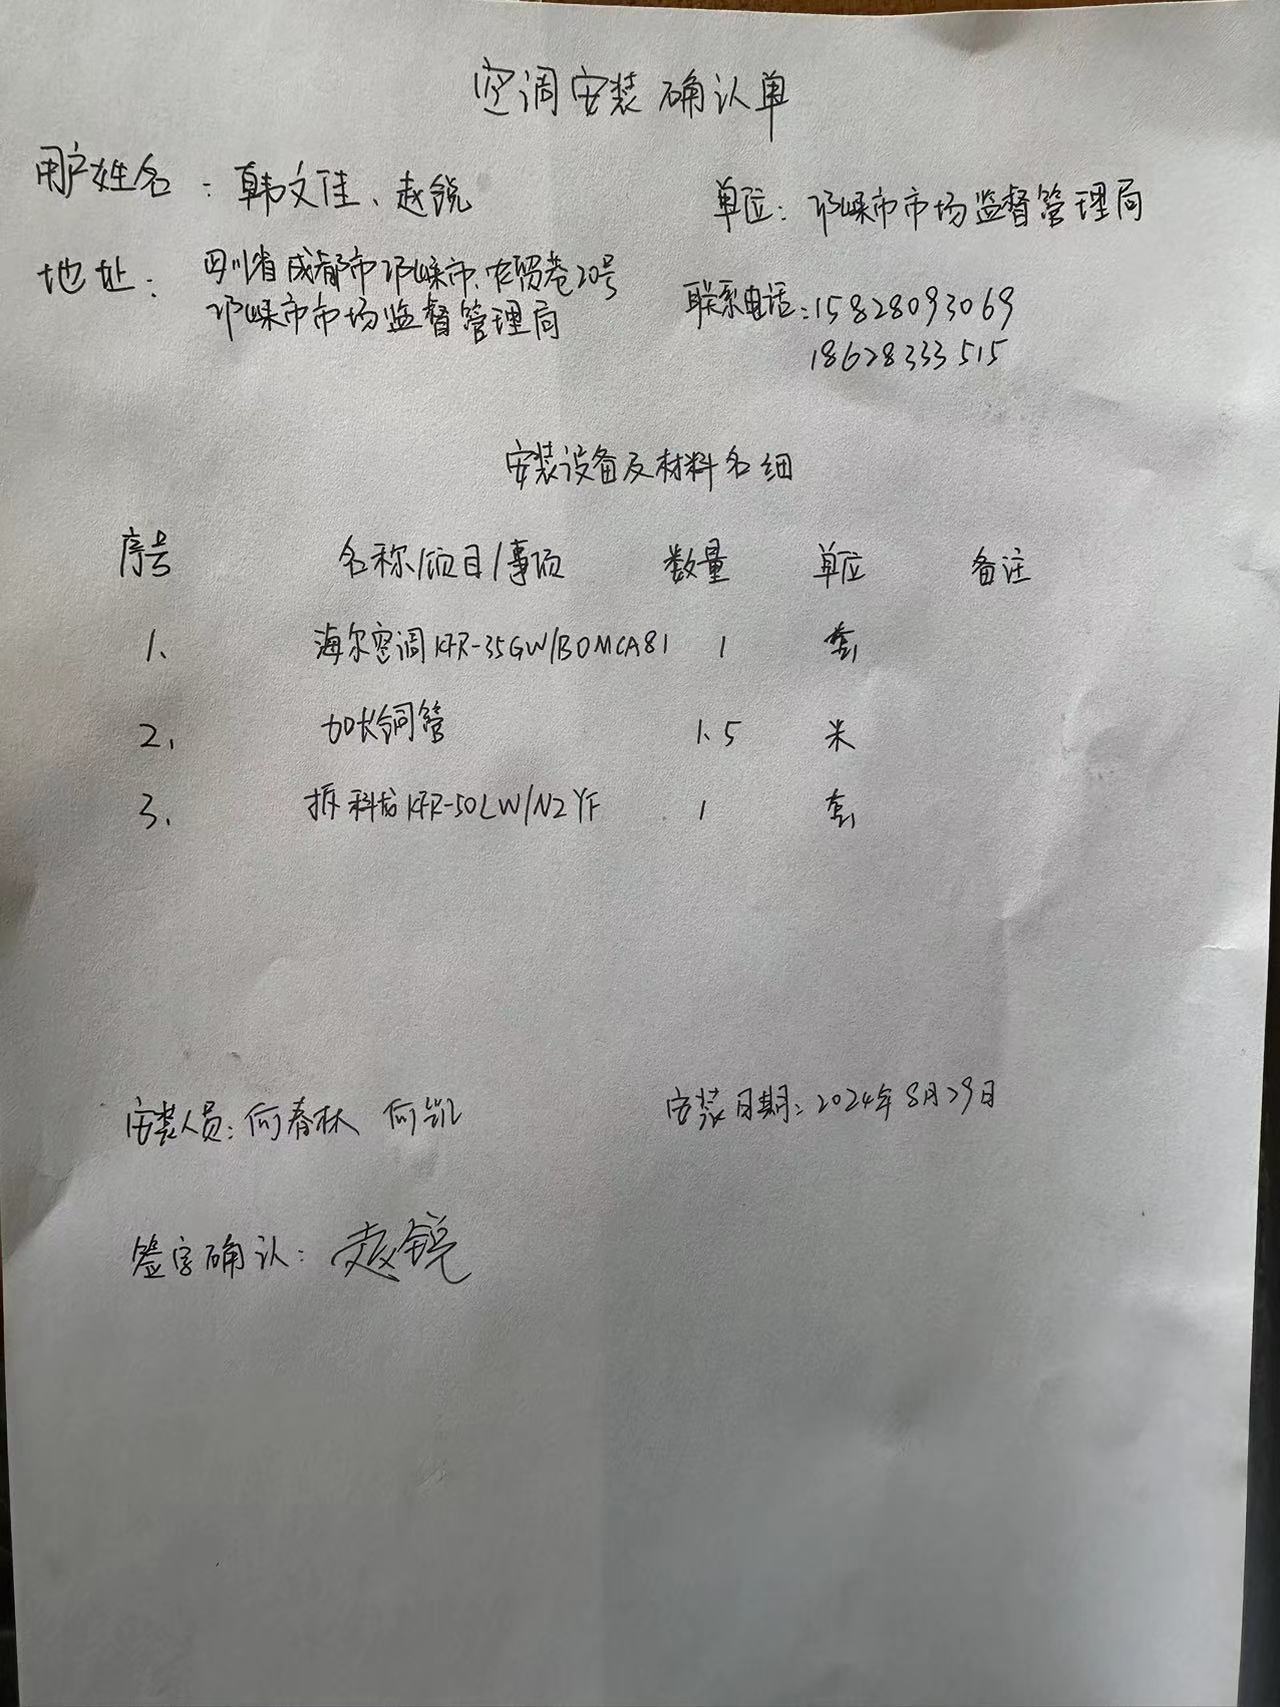 空调安装确认单
用户姓名：韩文佳、赵锐 单位：邛崃市市场监督管理局
地址：四川省成都市邛崃市、农贸巷20号
邛崃市市场监督管理局
联系电话：15828093069
18628333515
安装设备及材料名细
序号 名称/项目/事项 数量 单位 备注
1、 海尔空调KFR-35GW/B0MCA81 1 套
2、 加长铜管 1.5 米
3、 拆科龙KFR-50LW/N2YF 1 套
安装人员：何春林、何凯 安装日期：2024年8月29日
签字确认：赵锐